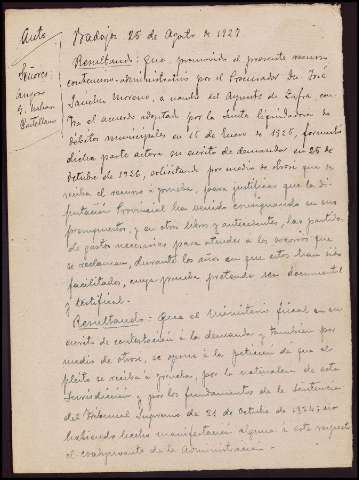 Auto
Badajoz 25 de Agosto de 1927
Señores
Resultando: Que, promovido el presente recurso
contencioso-administrativo por el Procurador Don José
Sánchez Moreno, a nombre del Ayunto de Zafra con
tra el acuerdo adoptado por la Junta liquidadora de
débitos municipales en 15 de Enero de 1926, formuló
dicha parte actora su escrito de demanda en 25 de
Octubre de 1926, solicitando por medio de otrosí que se
reciba el recurso a prueba, para justificar que la Di-
putación Provincial ha venido consignando en sus
presupuestos, y en otros libros y antecedentes, las partidas
de gastos necesarios para atender a los socorros que
se reclaman, durante los años en que estos han sido
facilitados, cuya prueba pretende sea documental
y testifical.
Resultando: Que el Ministerio fiscal en su
escrito de contestación á la demanda y también por
medio de otrosí, se opone á la petición de que el
pleito se reciba á prueba, por la naturaleza de esta
jurisdicción y por los fundamentos de la Sentencia
del Tribunal Supremo de 21 de Octubre de 1924; no
habiendo hecho manifestación alguna á este respecto
el coadyuvante de la Administración.